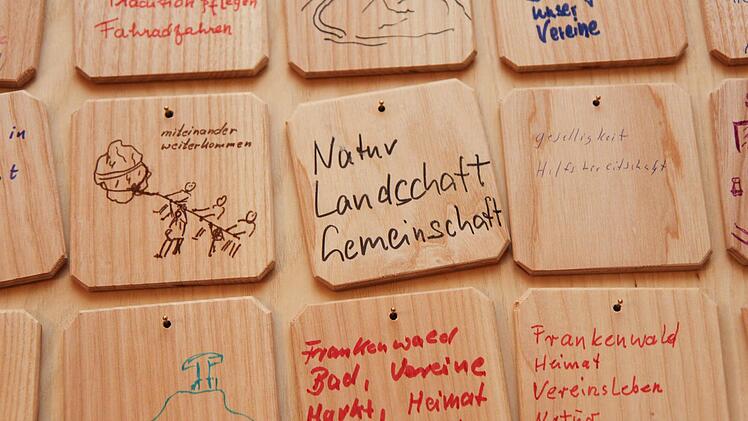 Tradition pflegen
Fahradfahren
unser
Vereine
in
t
miteinander
weiterkommen
Natur
Landschaft
Gemeinschaft
geselligkeit
Hilfsbereitschaft
Frankenwald
Bad, Vereine
Markt, Heimat
Frankenwald
Heimat
Vereinsleben
Natur